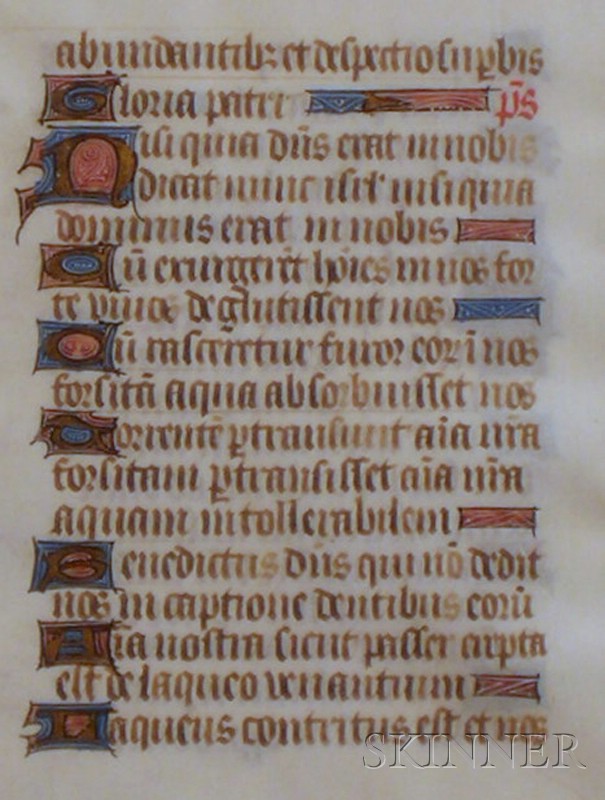 abundantibꝫ et despectio suꝑbis
Gloria patri p̄s
Nisi quia dn̄s erat in nobis
dicat nunc isrl̄ nisi quia
dominus erat in nobis
Cū exurgerēt hōies in nos for
te viuos deglutissent nos
Cū irasceretur furor eorū ī nos
forsitā aqua absorbuisset nos
Torrentē ꝑtransiuit aīa nr̄a
forsitam ꝑtransisset aīa nr̄a
aquam intollerabilem
Benedictus dn̄s qui nō dedit
nos in captione dentibus eorū
Aīa nostra sicut passer erepta
est de laqueo venantium
Laqueus contritus est et nos
SKINNER